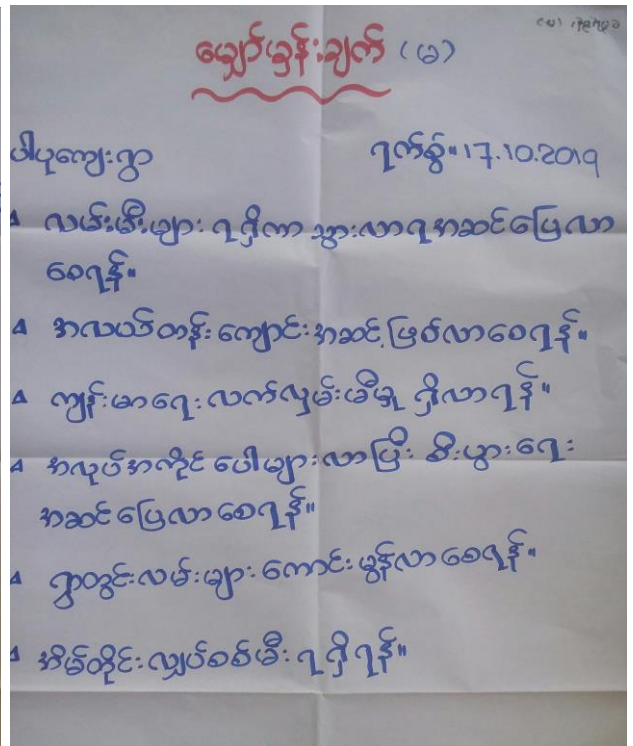 မျှော်မှန်းချက် (မ)
ပါပုကျေးရွာ ရက်စွဲ။ 17.10.2019
လမ်းမီးများ ရရှိကာ သွားလာရအဆင်ပြေလာ
စေရန်။
အလယ်တန်းကျောင်းအဆင့်ဖြစ်လာစေရန်။
ကျန်းမာရေး လက်လှမ်းမီမှု ရှိလာရန်။
အလုပ်အကိုင်ပေါများလာပြီး စီးပွားရေး
အဆင်ပြေလာစေရန်။
ရွာတွင်းလမ်းများ ကောင်းမွန်လာစေရန်။
အိမ်တိုင်းလျှပ်စစ်မီး ရရှိရန်။